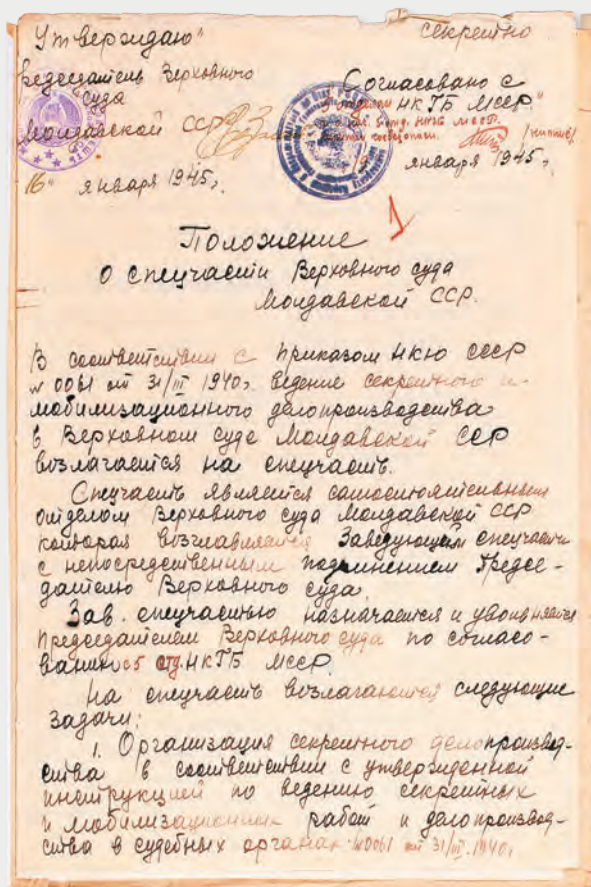 "Утверждаю"
секретно
Председатель Верховного
суда
Молдавской ССР
16" января 1945 г.
Согласовано с
5 отделом НКГБ МССР."
нач. 5 отд. НКГБ МССР
января 1945 г.
1
Положение
о спецчасти Верховного суда
Молдавской ССР.
В соответствии с приказом НКЮ СССР
№ 0061 от 31/III 1940 г. ведение секретного и
мобилизационного делопроизводства
в Верховном суде Молдавской ССР
возлагается на спецчасть.
Спецчасть является самостоятельным
отделом Верховного суда Молдавской ССР
которая возглавляется Заведующим спецчасти
с непосредственным подчинением Председателю
дателю Верховного суда.
Зав. спецчастью назначается и увольняется
Председателем Верховного суда по согласо-
ванию с 5 отд. НКГБ МССР.
На спецчасть возлагаются следующие
задачи:
1. Организация секретного делопроизвод-
ства в соответствии с утвержденной
инструкцией по ведению секретных
и мобилизационных работ и делопроизвод-
ства в судебных органах №0061 от 31/III.1940 г.